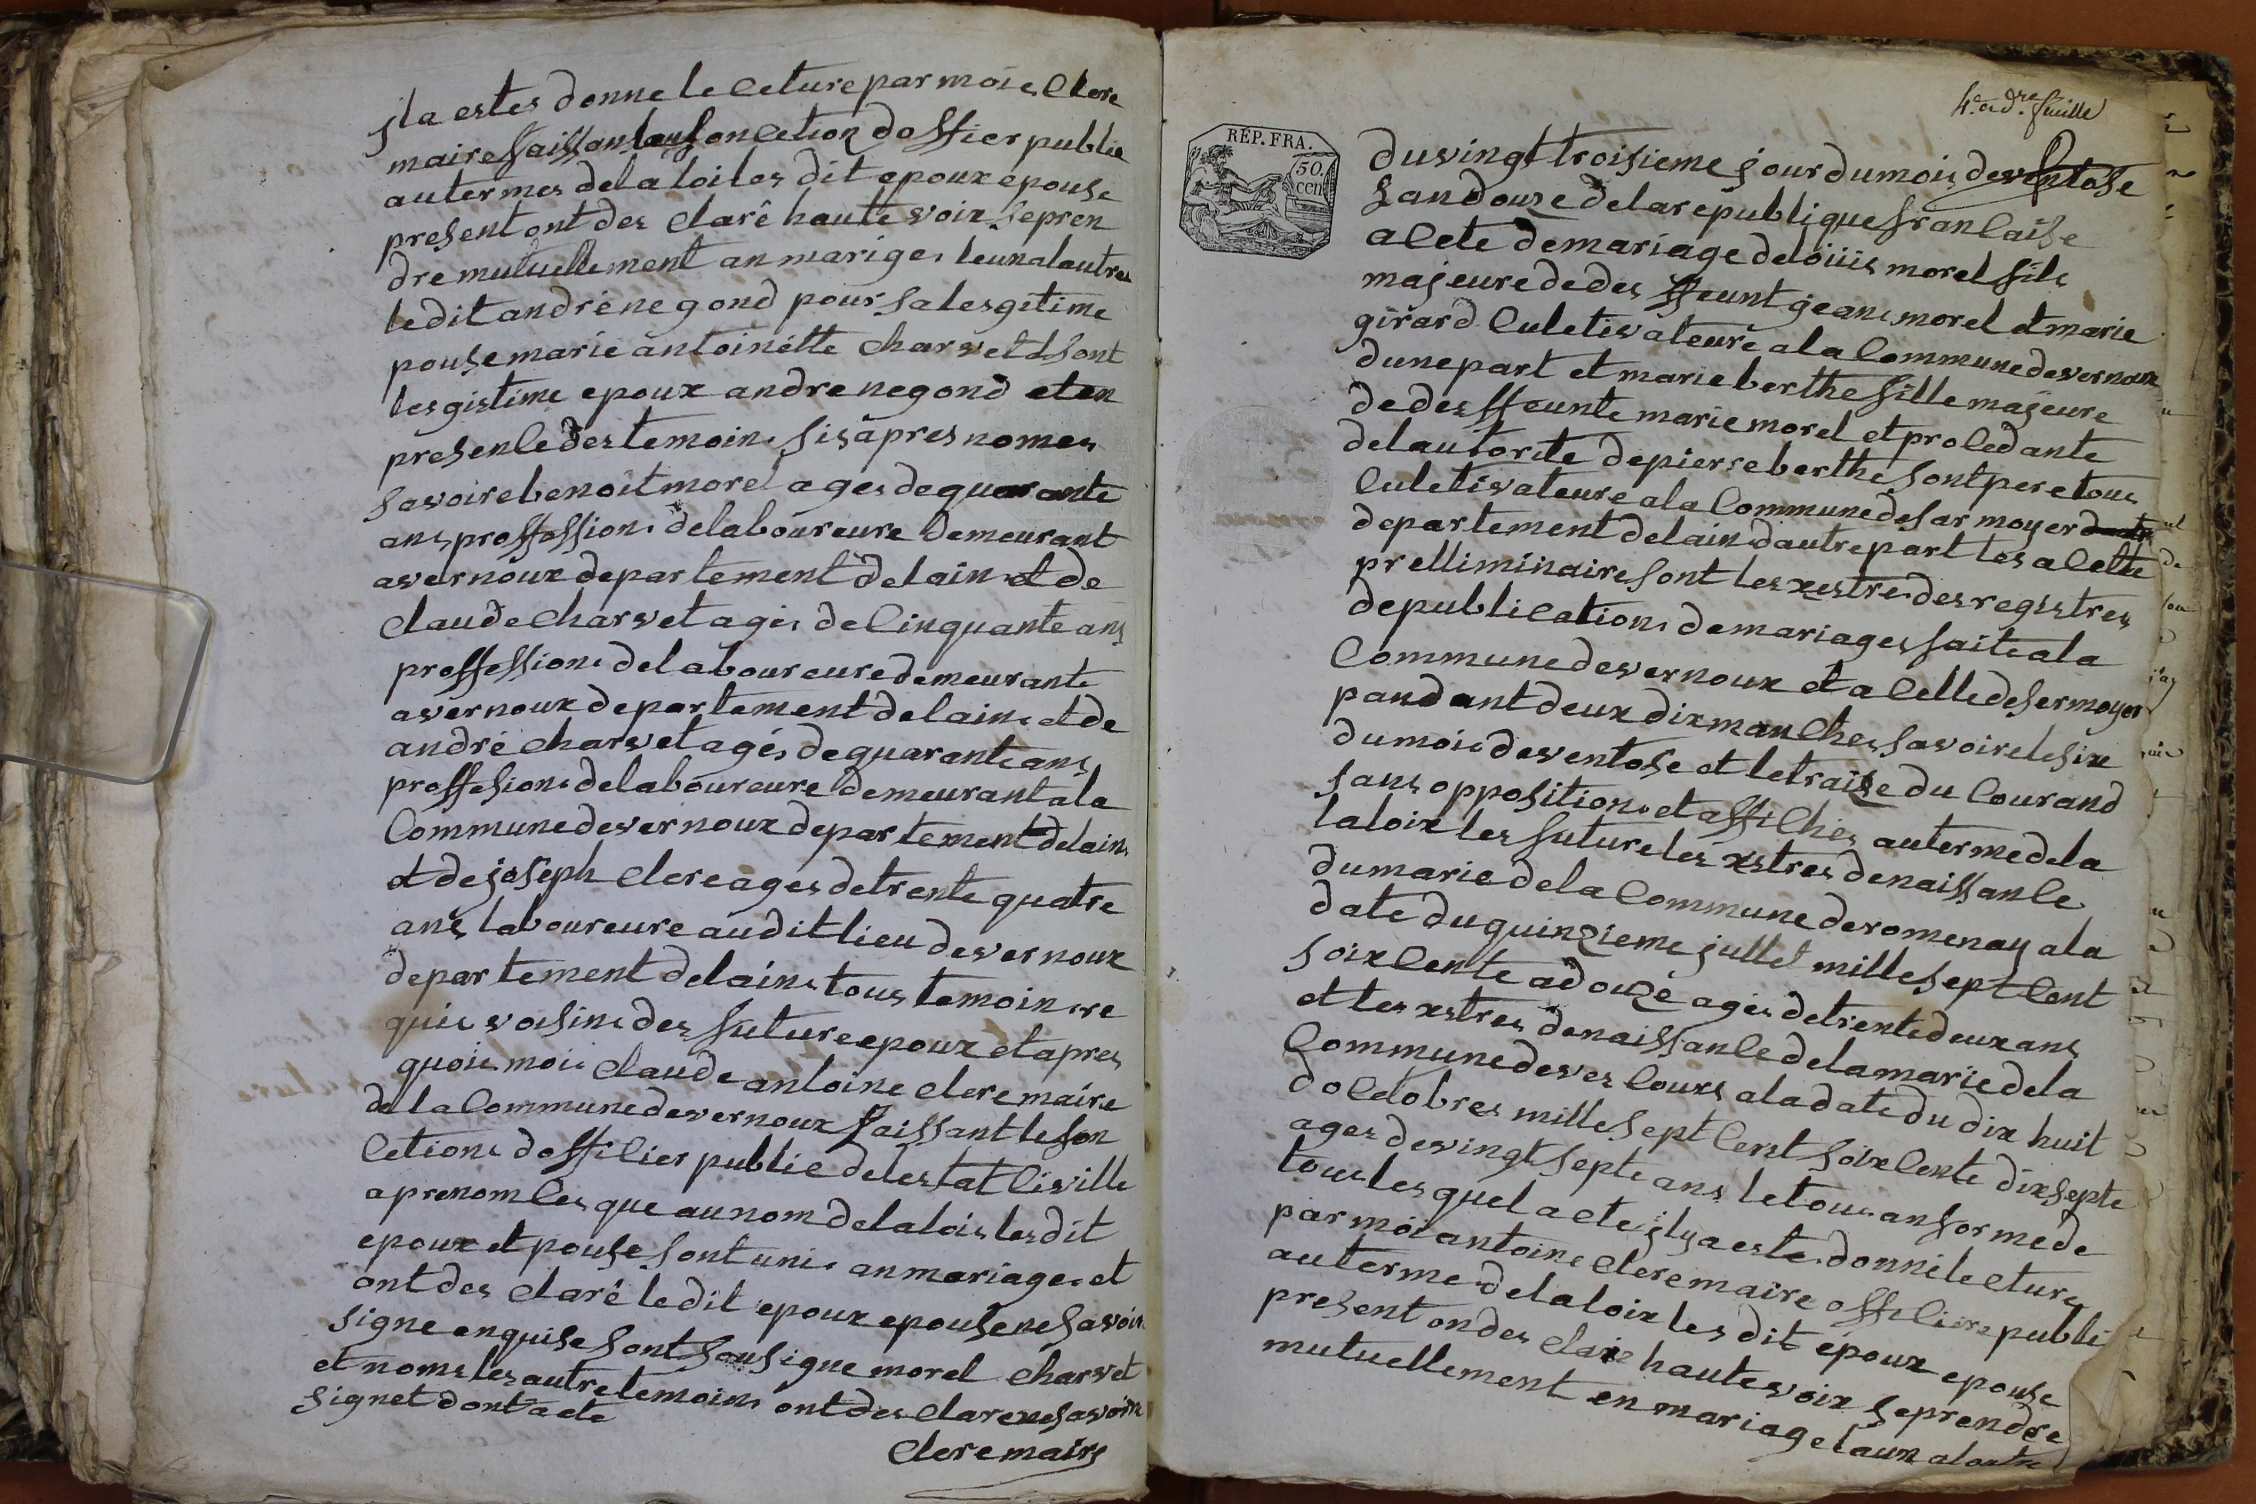 jla estes donne le Ceture par moie Clere
maire faissan lau fonCetion dossier publie
autermes de la loi les dit epoux epouse
present ont des Clarê haute voix se pren
dre mutuellement an marige leunalautre
ledit andré negond pour sa lesgetime
pouse marie antoinétte Charvet sont
lesgistime epoux andre negond et en
presenCe des temoins sisâpres nomes
savoire benoit morel ages de quarante
ans proffession de laboureure demeurant
a vernoux departement de lain et de
Claude Charvet ages de Cinquante ans
proffession de laboureure demeurante
a vernoux departement de lain et de
andré Charvet agés de quarante ans
proffesion de laboureure demeurant a la
Commune de vernoux departement de lain
et de joseph Clere ages de trente quatre
ans laboureure audit lieu de vernoux
departement de lain tous temoins re
quis voisins des future epoux et apres
quois mois Claude antoine Clere maire
de la Commune de vernoux faissant le fon
Cetions doffiCier publie de lestat Civille
a prenomCes que au nom de la lois les dit
epoux et pouse sont unis an mariages et
ont des Claré le dit epoux epouse ne savoir
signe enquise sont sousigne morel Charvet
et noms les autre temoins ont des Clare ne savoire
signet dont acte
Clere maire
4.e a d.re feuille
RÉP. FRA.
50.
cen
du vingt troisieme jour du mois de ventose
lan douze de la republique franCaise
aCete de mariage de loüis morel fils
majeure de des ffeunt jean morel et marie
girard Culetivateure a la Commune de vernoux
dune part et marie berthe fille majeure
de des ffeunte marie morel et proCedante
de lautorite de pierre berthe sont pere tous
Culetivateure a la Commune de sarmoyer
departement de lain dautre part les a Cette
prelliminaire sont les xestre des registres
de publiCations de mariages faite a la
Commune de vernoux et a Celle de sermoyer
pandant deux dixmanChes savoire le six
du mois de ventose et le traise du Courand
sans oppositions et affiChes au terme de la
la loix les future les xstres de naissanCe
du marie de la Commune de romenay a la
date du quinzieme jullet mille sept Cent
soixCente a douze ages de trente deux ans
et les xstres de naissanCe de la marie de la
Commune de verCours a la date du dix huit
doCetobres mille sept Cent soixCente dix septe
ages de vingt septe ans le tous an forme de
tous les quel acte jl y a este donné le Cture
par moi antoine Clere maire offiCiere publi
au terme de la loix les dit epoux epouse
present on des Clare haute voix se prendre
mutuellement en mariage laun a lautre